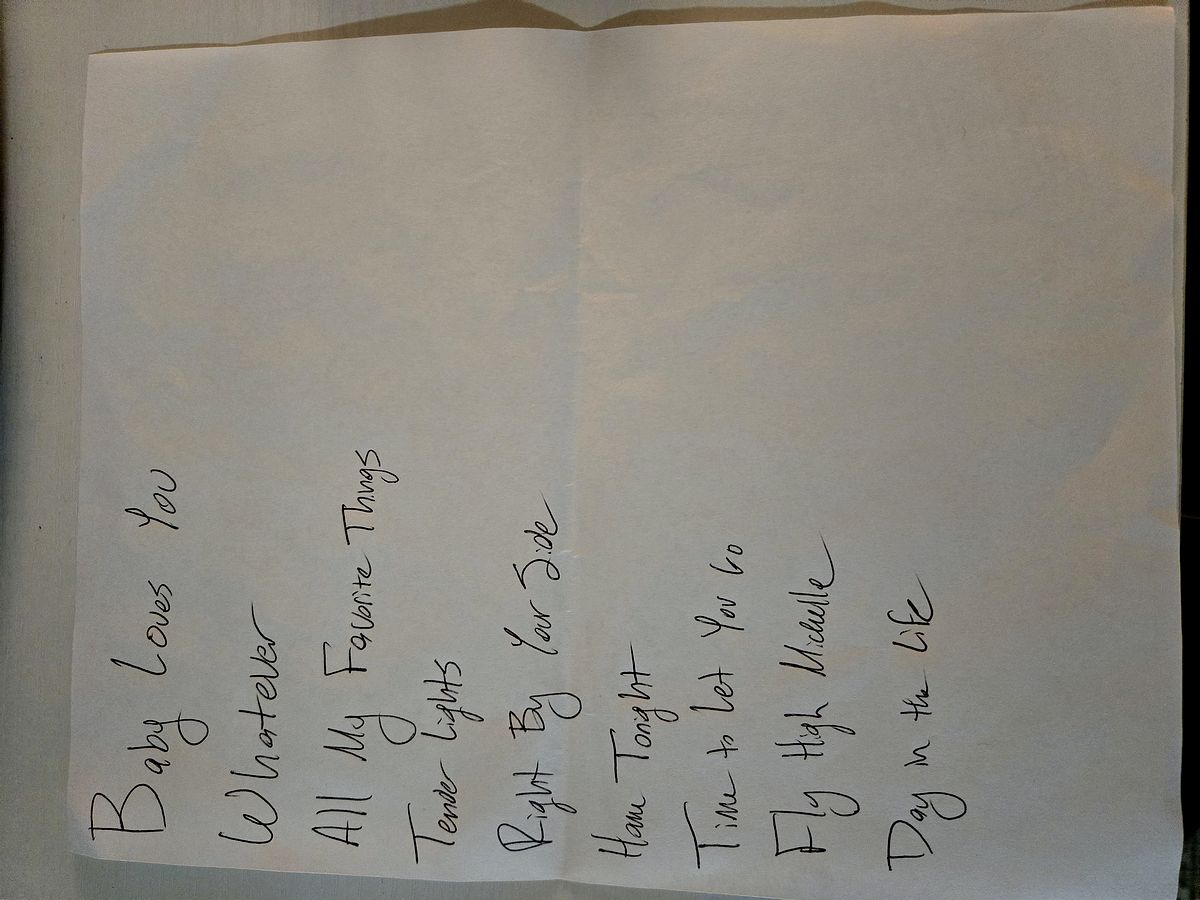 Baby Loves You
Whatever
All My Favorite Things
Tender Lights
Right By Your Side
Home Tonight
Time to Let You Go
Fly High Michelle
Day in the Life